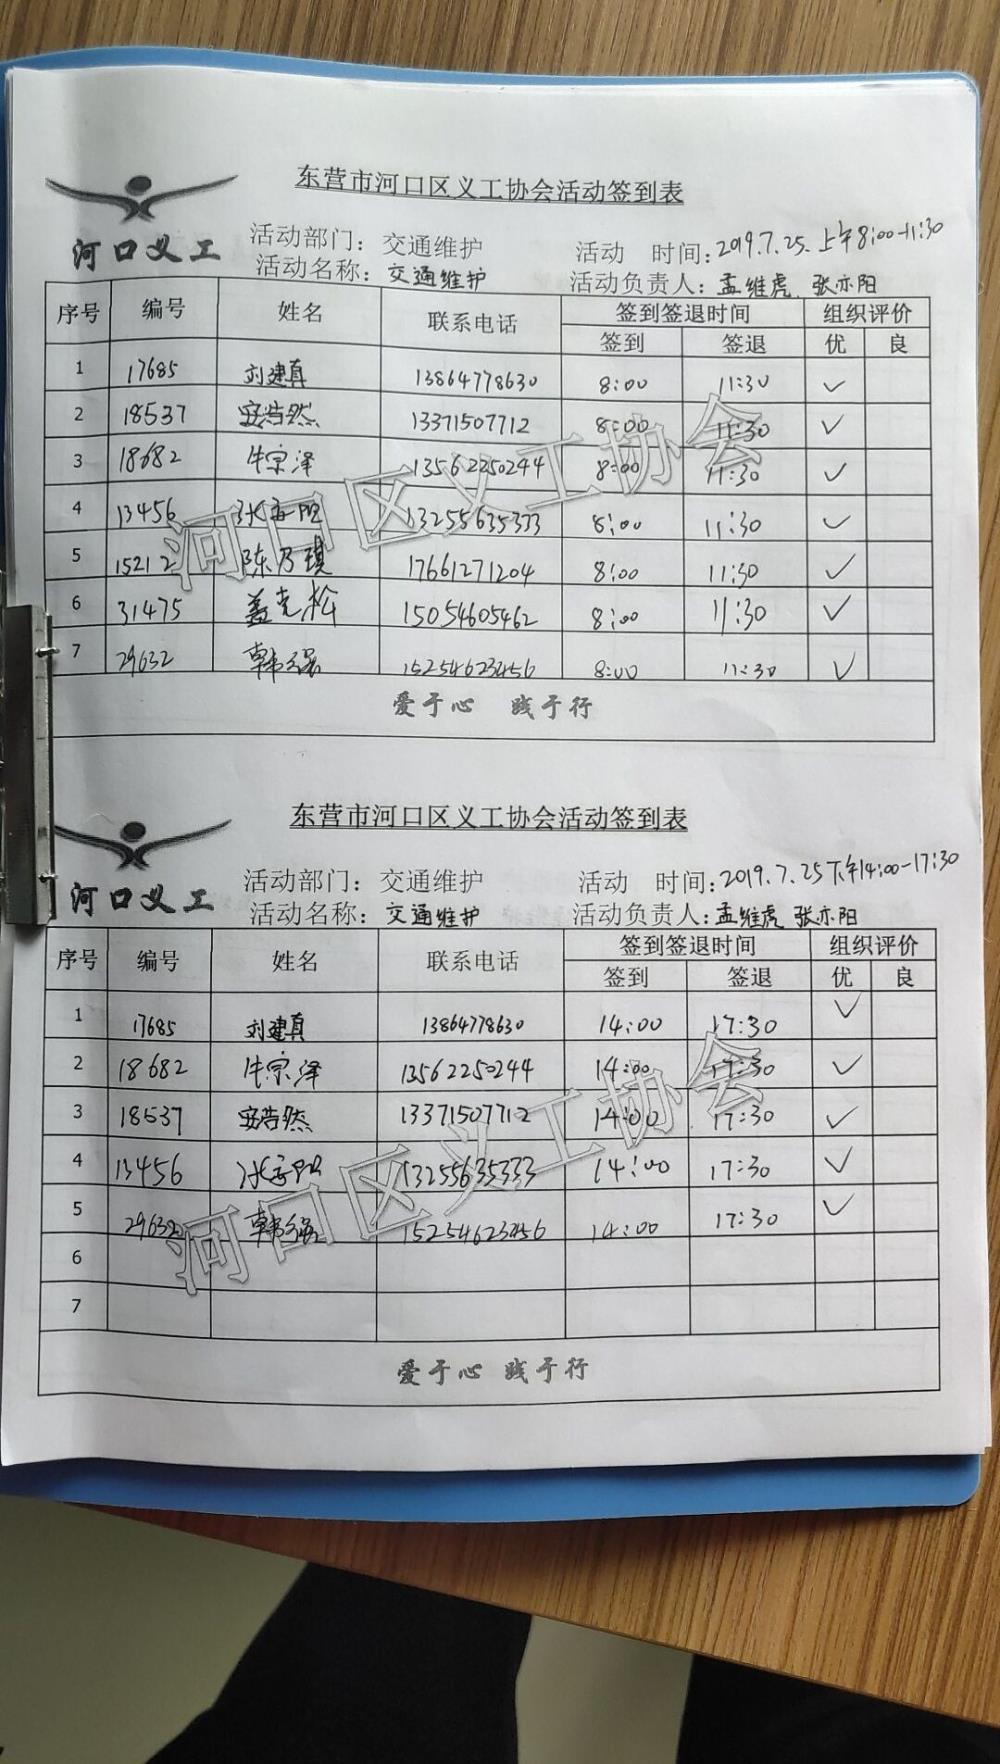 东营市河口区义工协会活动签到表
河口义工
活动部门：交通维护 活动 时间：2019.7.25.上午8:00-11:30
活动名称：交通维护 活动负责人：孟维虎 张亦阳
序号 编号 姓名 联系电话 签到签退时间 组织评价
签到 签退 优 良
1 17685 刘建真 13864778630 8:00 11:30 ✓
2 18537 安浩然 13371507712 8:00 11:30 ✓
3 18682 牛宗泽 13562250244 8:00 11:30 ✓
4 13456 13255635333 8:00 11:30 ✓
5 15212 陈乃琪 17661271204 8:00 11:30 ✓
6 31475 盖克松 15054605462 8:00 11:30 ✓
7 29632 15254623456 8:00 11:30 ✓
爱于心 践于行
河口区义工协会
东营市河口区义工协会活动签到表
河口义工
活动部门：交通维护 活动 时间：2019.7.25下午14:00-17:30
活动名称：交通维护 活动负责人：孟维虎 张亦阳
序号 编号 姓名 联系电话 签到签退时间 组织评价
签到 签退 优 良
1 17685 刘建真 13864778630 14:00 17:30 ✓
2 18682 牛宗泽 13562250244 14:00 17:30 ✓
3 18537 安浩然 13371507712 14:00 17:30 ✓
4 13456 13255635333 14:00 17:30 ✓
5 29632 15254623456 14:00 17:30 ✓
6
7
爱于心 践于行
河口区义工协会